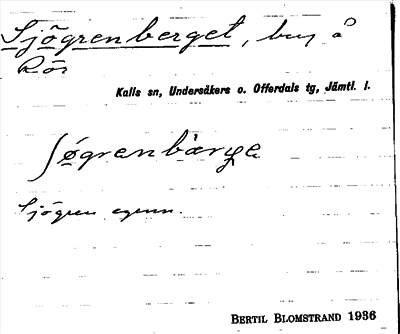 Sjögrenberget, berg å
Rör
Kalls sn, Undersåkers o. Offerdals tg, Jämtl. l.
ʃøgrenbærge
Sjögren egenn.
BERTIL BLOMSTRAND 1936